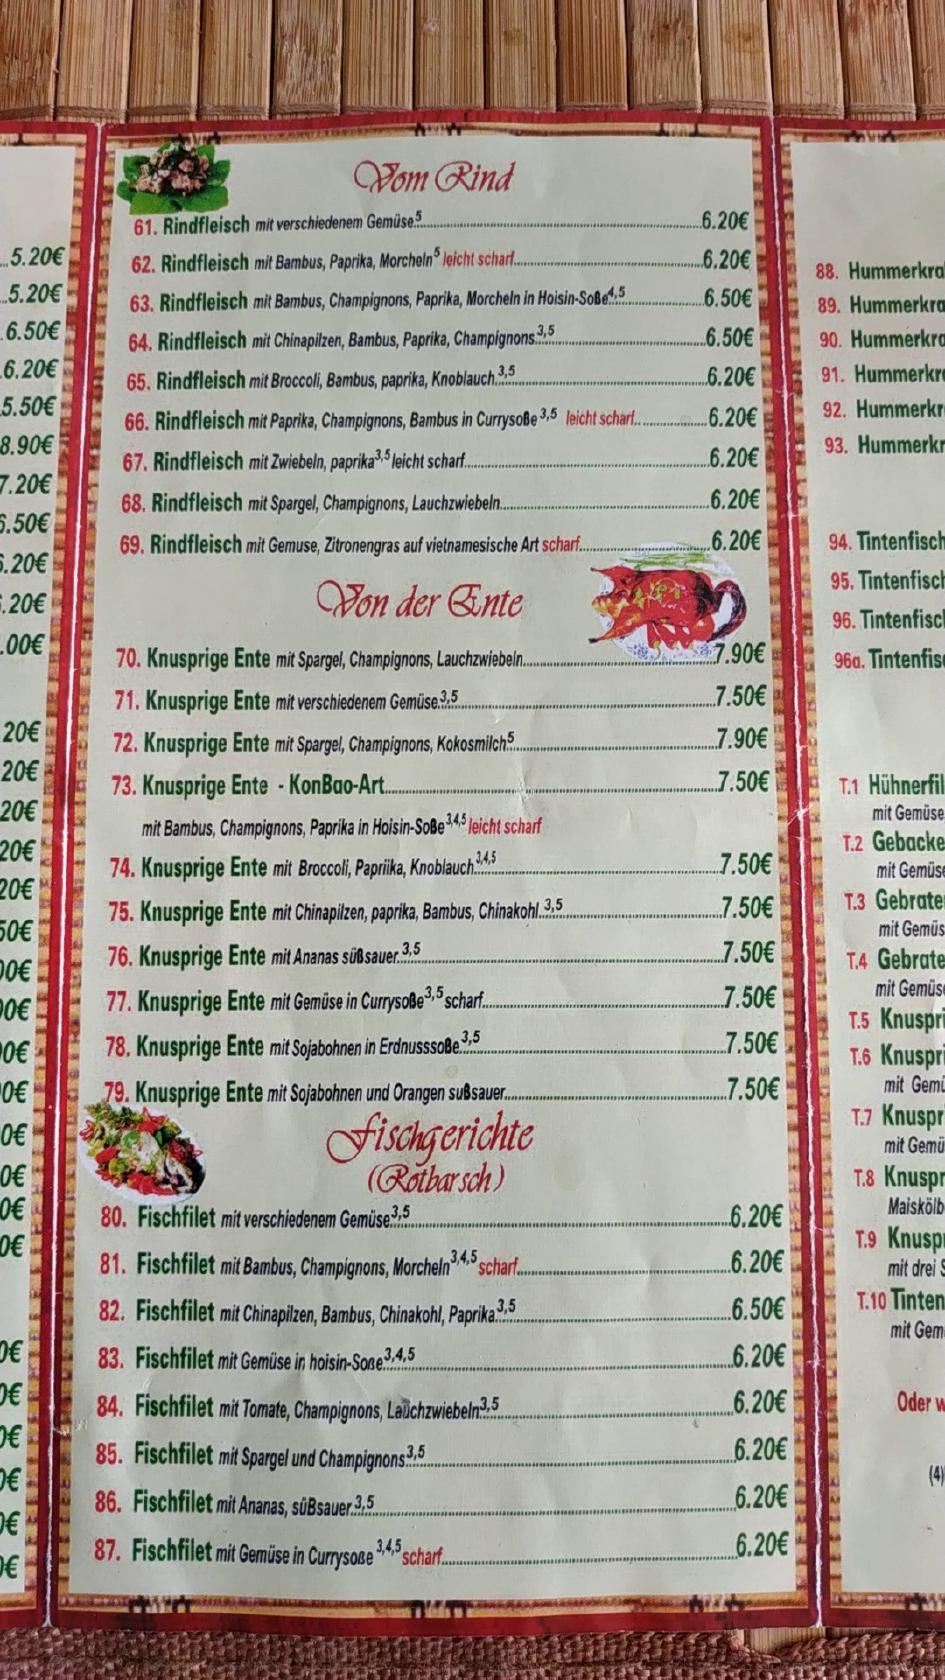 5.20€
5.20€
6.50€
6.20€
5.50€
8.90€
7.20€
6.50€
6.20€
.20€
.00€
20€
20€
20€
20€
20€
50€
00€
00€
0€
0€
0€
0€
0€
0€
0€
0€
0€
0€
0€
0€
Vom Rind
61. Rindfleisch mit verschiedenem Gemüse5 6.20€
62. Rindfleisch mit Bambus, Paprika, Morcheln5 leicht scharf 6.20€
63. Rindfleisch mit Bambus, Champignons, Paprika, Morcheln in Hoisin-Soße4,5 6.50€
64. Rindfleisch mit Chinapilzen, Bambus, Paprika, Champignons3,5 6.50€
65. Rindfleisch mit Broccoli, Bambus, paprika, Knoblauch3,5 6.20€
66. Rindfleisch mit Paprika, Champignons, Bambus in Currysoße3,5 leicht scharf 6.20€
67. Rindfleisch mit Zwiebeln, paprika3,5 leicht scharf 6.20€
68. Rindfleisch mit Spargel, Champignons, Lauchzwiebeln 6.20€
69. Rindfleisch mit Gemuse, Zitronengras auf vietnamesische Art scharf 6.20€
Von der Ente
70. Knusprige Ente mit Spargel, Champignons, Lauchzwiebeln 7.90€
71. Knusprige Ente mit verschiedenem Gemüse3,5 7.50€
72. Knusprige Ente mit Spargel, Champignons, Kokosmilch5 7.90€
73. Knusprige Ente - KonBao-Art 7.50€
mit Bambus, Champignons, Paprika in Hoisin-Soße3,4,5 leicht scharf
74. Knusprige Ente mit Broccoli, Papriika, Knoblauch3,4,5 7.50€
75. Knusprige Ente mit Chinapilzen, paprika, Bambus, Chinakohl 3,5 7.50€
76. Knusprige Ente mit Ananas süßsauer3,5 7.50€
77. Knusprige Ente mit Gemüse in Currysoße3,5 scharf 7.50€
78. Knusprige Ente mit Sojabohnen in Erdnusssoße3,5 7.50€
79. Knusprige Ente mit Sojabohnen und Orangen sußsauer 7.50€
Fischgerichte
(Rotbarsch)
80. Fischfilet mit verschiedenem Gemüse3,5 6.20€
81. Fischfilet mit Bambus, Champignons, Morcheln3,4,5 scharf 6.20€
82. Fischfilet mit Chinapilzen, Bambus, Chinakohl, Paprika3,5 6.50€
83. Fischfilet mit Gemüse in hoisin-Soße3,4,5 6.20€
84. Fischfilet mit Tomate, Champignons, Lauchzwiebeln3,5 6.20€
85. Fischfilet mit Spargel und Champignons3,5 6.20€
86. Fischfilet mit Ananas, süßsauer3,5 6.20€
87. Fischfilet mit Gemüse in Currysoße 3,4,5 scharf 6.20€
88. Hummerkra
89. Hummerkra
90. Hummerkra
91. Hummerkr
92. Hummerkr
93. Hummerkr
94. Tintenfisch
95. Tintenfisch
96. Tintenfisc
96a. Tintenfis
T.1 Hühnerfil
mit Gemüse
T.2 Gebacke
mit Gemüse
T.3 Gebrate
mit Gemüs
T.4 Gebrate
mit Gemüse
T.5 Knuspri
T.6 Knuspri
mit Gemü
T.7 Knuspr
mit Gemü
T.8 Knuspr
Maiskölb
T.9 Knusp
mit drei S
T.10 Tinten
mit Gem
Oder w
(4)